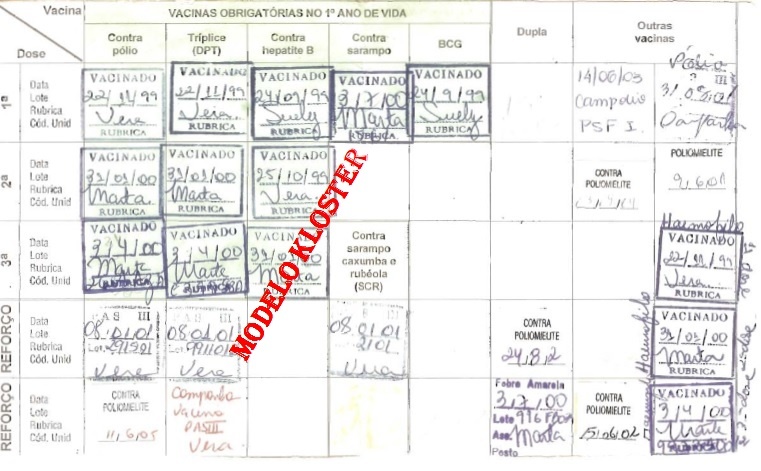 Vacina
VACINAS OBRIGATÓRIAS NO 1º ANO DE VIDA
Dose
Contra pólio
Tríplice (DPT)
Contra hepatite B
Contra sarampo
BCG
Dupla
Outras vacinas
1ª
Data
Lote
Rubrica
Cód. Unid
VACINADO
22/11/99
Vera
RUBRICA
VACINADO
22/11/99
Vera
RUBRICA
VACINADO
24/09/99
Suely
RUBRICA
VACINADO
3/7/00
Marta
RUBRICA
VACINADO
24/9/99
Suely
RUBRICA
14/06/03
Campolio
PSF I.
Pólio
III
2ª
Data
Lote
Rubrica
Cód. Unid
VACINADO
31/01/00
Marta
RUBRICA
VACINADO
31/01/00
Marta
RUBRICA
VACINADO
25/10/99
Vera
RUBRICA
CONTRA
POLIOMIELITE
POLIOMIELITE
9.6.01
3ª
Data
Lote
Rubrica
Cód. Unid
VACINADO
3/4/00
VACINADO
3/4/00
Marta
VACINADO
31/03/00
Marta
RUBRICA
Contra
sarampo
caxumba e
rubéola
(SCR)
Haemofilo
VACINADO
22/11/99
Vera
RUBRICA
REFORÇO
Data
Lote
Rubrica
Cód. Unid
CAS III
08.01.01
Vera
III
08.01.01
Vera
III
08.01.01
Vera
CONTRA
POLIOMIELITE
24.8.2
Haemofilo
VACINADO
31/01/00
Marta
RUBRICA
REFORÇO
Data
Lote
Rubrica
Cód. Unid
CONTRA
POLIOMIELITE
11.6.05
Campanha
Vacina
PASIII
Vera
Febre Amarela
3/7/00
Lote
Ass. Marta
Posto
CONTRA
POLIOMIELITE
15.06.02
VACINADO
3/4/00
Marta
RUBRICA
MODELO KLOSTER